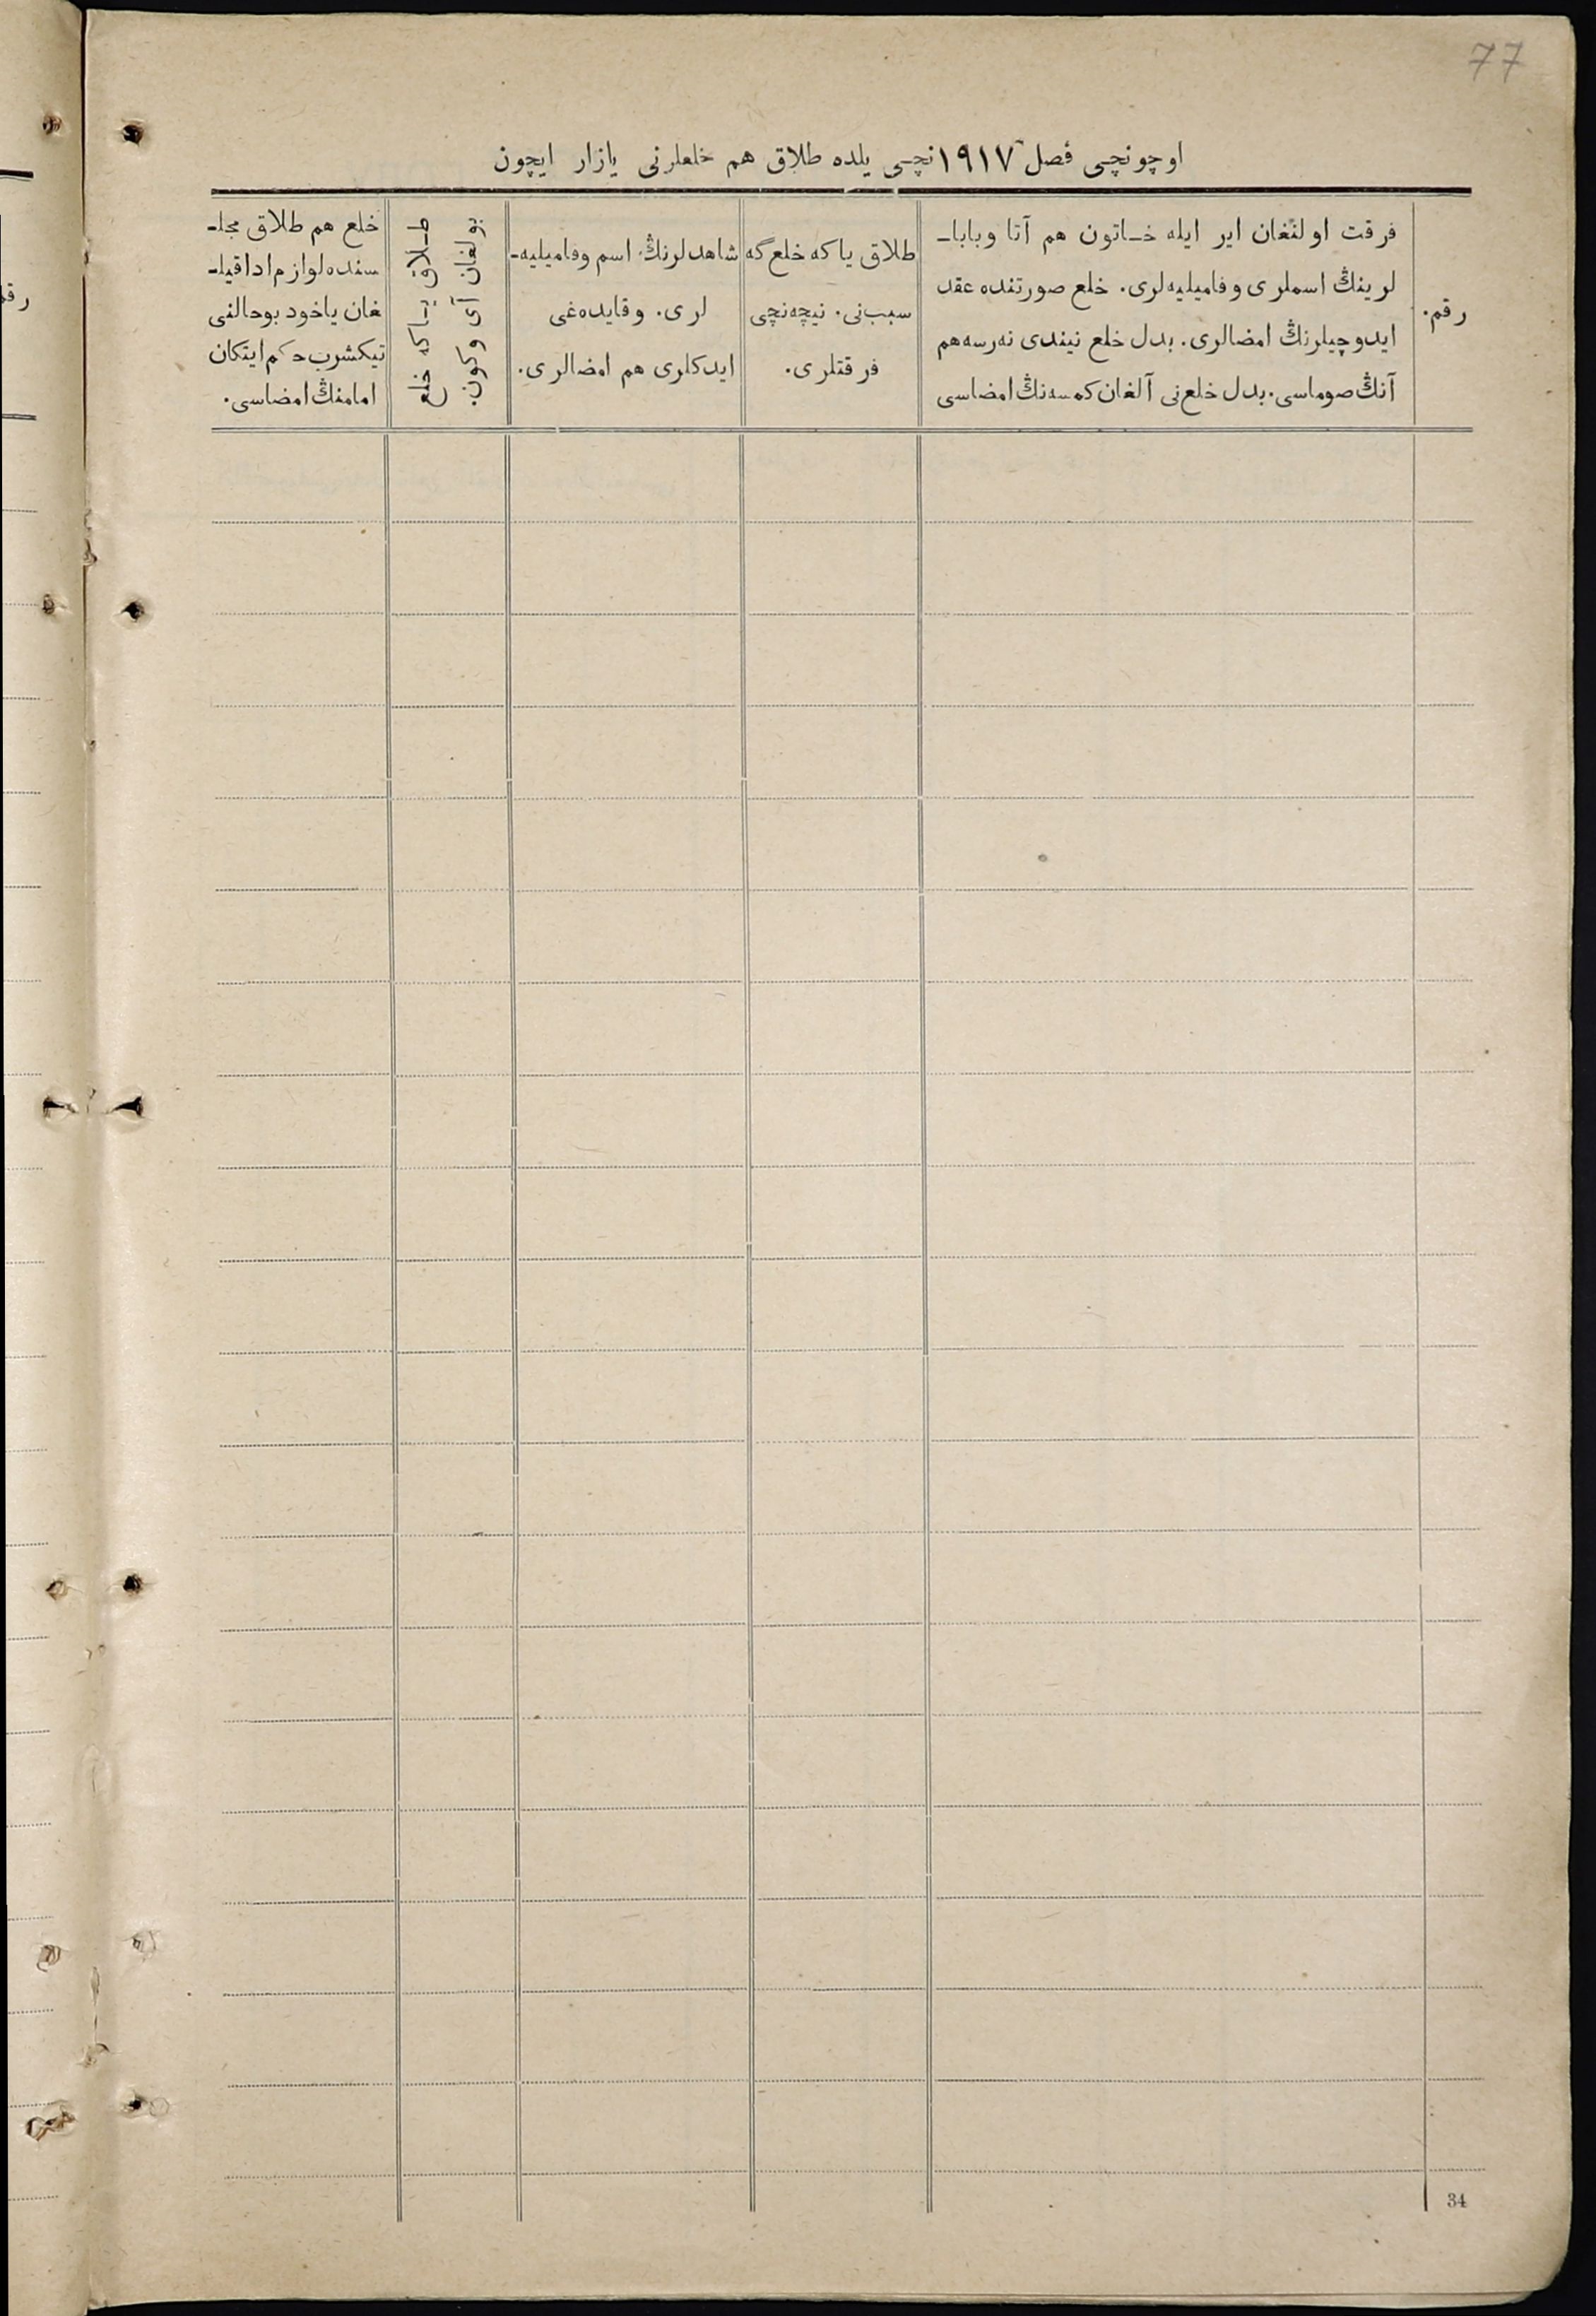 77
اوچونچی فصل ١٩١٧ نچی یلده طلاق هم خلعلرنی یازار ایچون
رقم.
فرقت اولنغان ایر ایله خــاتون هم آتا وبابا‌ـ
لرینڭ اسملری وفامیلیه‌لری. خلع صورتنده عقد
ایدوچیلرنڭ امضالری. بدل خلع نیندی نه‌رسه هم
آنڭ صوماسی. بدل خلع‌نی آلغان کمسه‌نڭ امضاسی
طلاق یاکه خلع گه
سبب‌نی. نیچه‌نچی
فرقتلری.
شاهدلرنڭ اسم وفامیلیه‌ـ
لری. وقایده‌غی
ایدکلری هم امضالری.
طــلاق یــاکه خلع
بولغان آی وکون.
خلع هم طلاق مجلـ
سنده لوازم ادا قیلـ
غان یاخود بوحالنی
تیکشرب حکم ایتکان
امامنڭ امضاسی.
34